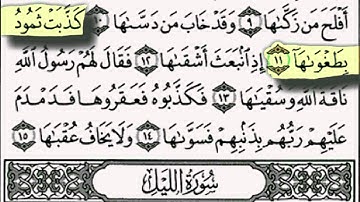 أَفْلَحَ مَن زَكَّىٰهَا ۝٩ وَقَدْ خَابَ مَن دَسَّىٰهَا ۝١٠ كَذَّبَتْ ثَمُودُ
بِطَغْوَىٰهَآ ۝١١ إِذِ ٱنۢبَعَثَ أَشْقَىٰهَا ۝١٢ فَقَالَ لَهُمْ رَسُولُ ٱللَّهِ
نَاقَةَ ٱللَّهِ وَسُقْيَـٰهَا ۝١٣ فَكَذَّبُوهُ فَعَقَرُوهَا فَدَمْدَمَ
عَلَيْهِمْ رَبُّهُم بِذَنۢبِهِمْ فَسَوَّىٰهَا ۝١٤ وَلَا يَخَافُ عُقْبَـٰهَا ۝١٥
سُورَةُ اللَّيْلِ